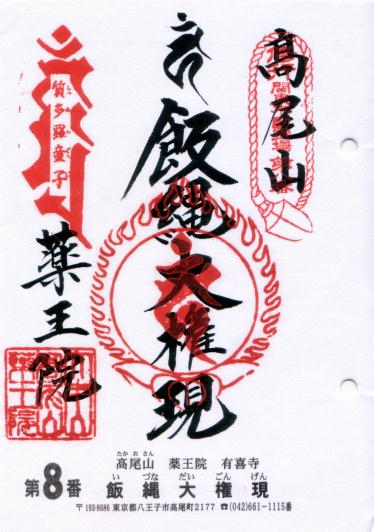 髙尾山
飯縄大権現
薬王院
質多羅童子
たかおさん
髙尾山 薬王院 有喜寺
第8番
いづなだいごんげん
飯縄大権現
〒193-8686 東京都八王子市高尾町2177 ☎(042)661-1115番